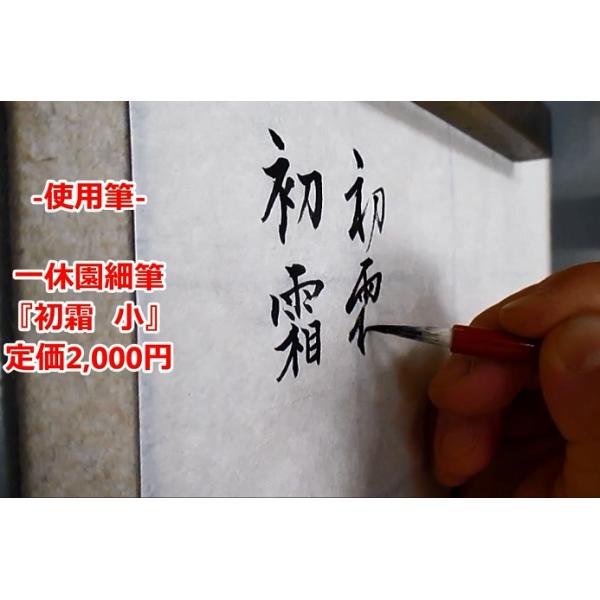 -使用筆-
一休園細筆
『初霜 小』
定価2,000円
初霜
初